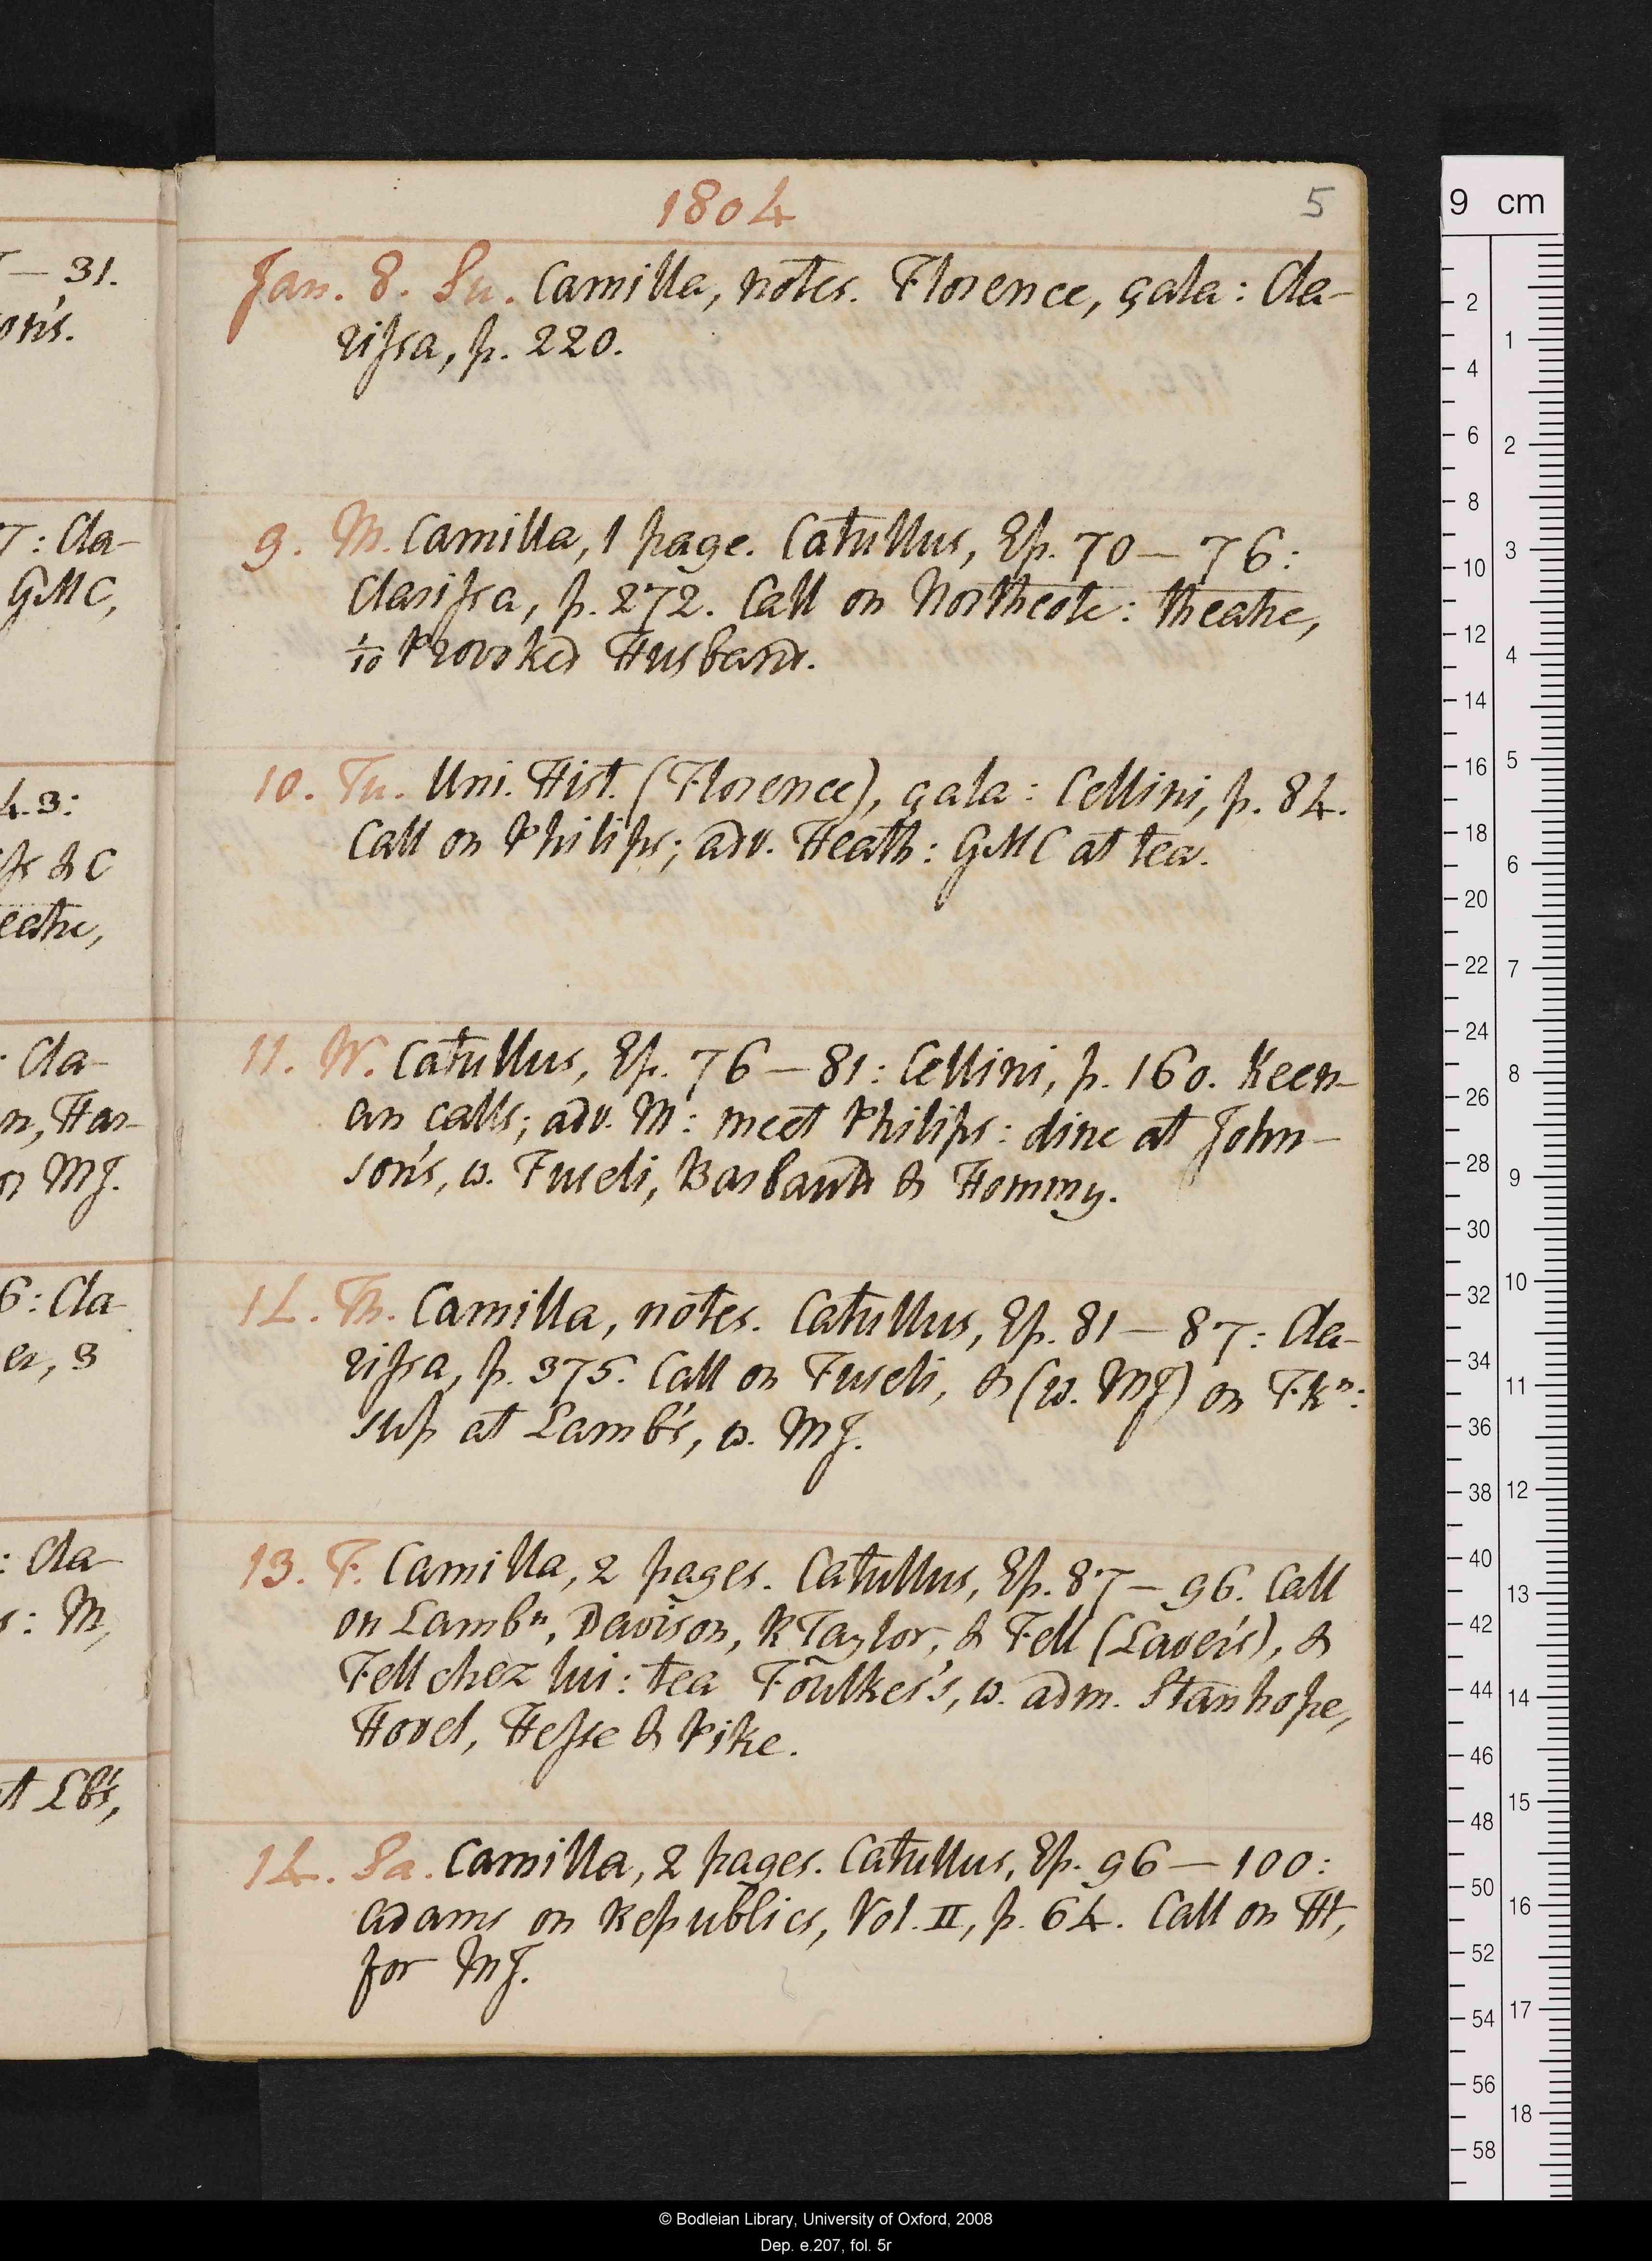 1804
5
Jan. 8. Su. Camilla, notes. Florence, çala: Cla-
rissa, p. 220.
9. M. Camilla, 1 page. Catullus, Ep. 70 — 76:
Clarissa, p. 272. Call on Northcote: theatre,
1/10 Provoked Husband.
10. Tu. Uni. Hist. (Florence), çala: Cellini, p. 84.
Call on Philips; adv. Heath: GMC at tea.
11. W. Catullus, Ep. 76 — 81: Cellini, p. 160. Keen-
an calls; adv. M: meet Philips: dine at John-
son's, w. Fuseli, Barbauds & Hommy.
12. Th. Camilla, notes. Catullus, Ep. 81 — 87: Cla-
rissa, p. 375. Call on Fuseli, & (w. MJ) on Fkn:
sup at Lamb's, w. MJ.
13. F. Camilla, 2 pages. Catullus, Ep. 87 — 96. Call
on Lambn, Davison, R Taylor, & Fell (Laver's), &
Fell chez lui: tea Foulkes's, w. adm. Stanhope,
Hovel, Hesse & Pike.
14. Sa. Camilla, 2 pages. Catullus, Ep. 96 — 100:
Adams on Republics, Vol. II, p. 64. Call on Ht,
for MJ.
— 31.
on's.
7: Cla-
GMC,
4.3:
& C
eatre,
: Cla-
n, Har-
n MJ.
6: Cla-
er, 3
: Cla-
s: M,
at Lb's,
9 cm
2
4
6
8
10
12
14
16
18
20
22
24
26
28
30
32
34
36
38
40
42
44
46
48
50
52
54
56
58
1
2
3
4
5
6
7
8
9
10
11
12
13
14
15
16
17
18
© Bodleian Library, University of Oxford, 2008
Dep. e.207, fol. 5r